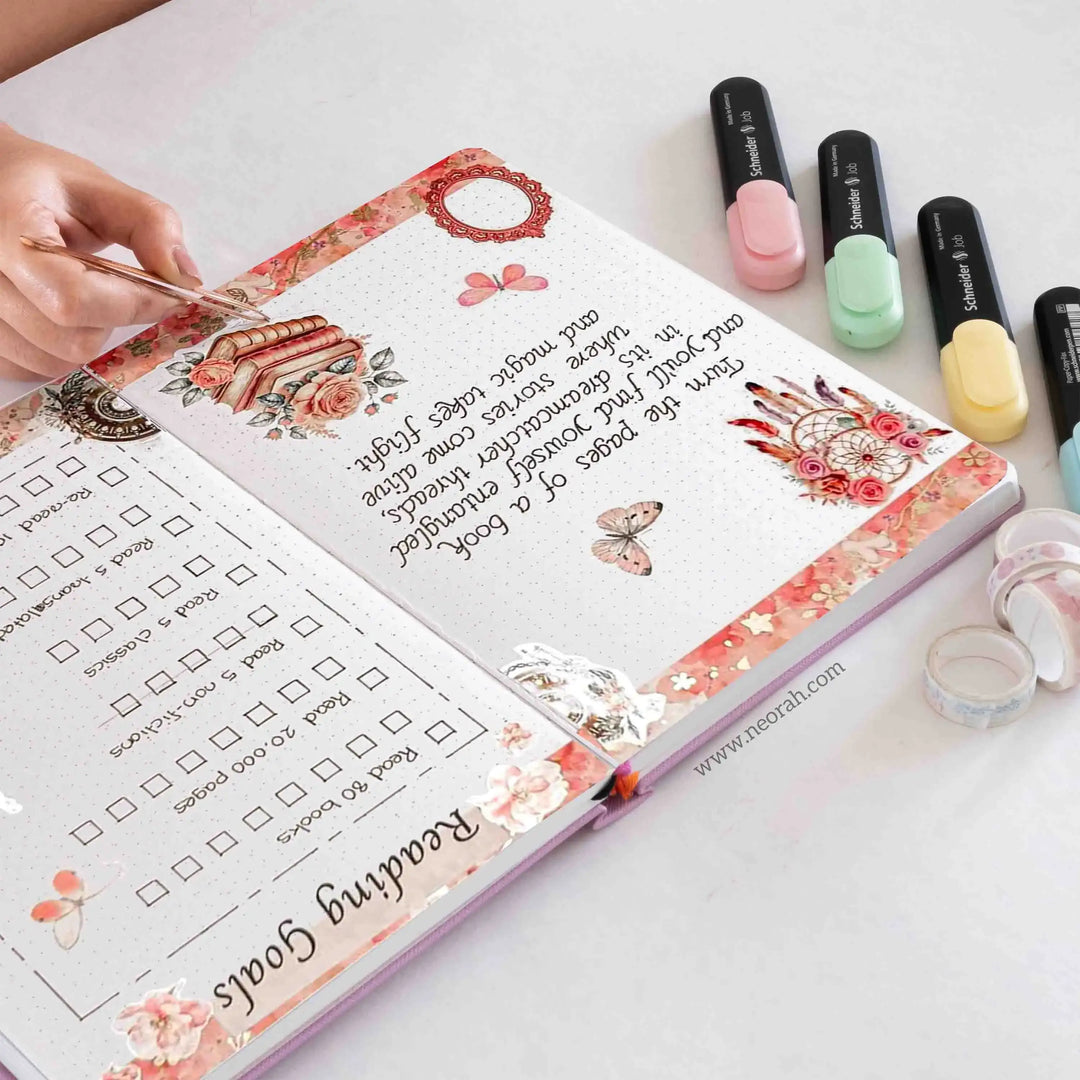 Reading Goals
Read 80 books
Read 20.000 pages
Read 5 non-fictions
Read 5 classics
Read 5 translated
Re-read
Turn the pages of a book
and you'll find yourself entangled
in its dreamcatcher threads,
Where stories come alive
and magic takes flight.
Schneider Job
Made in Germany
Schneider Job
Made in Germany
Schneider Job
Made in Germany
www.neorah.com